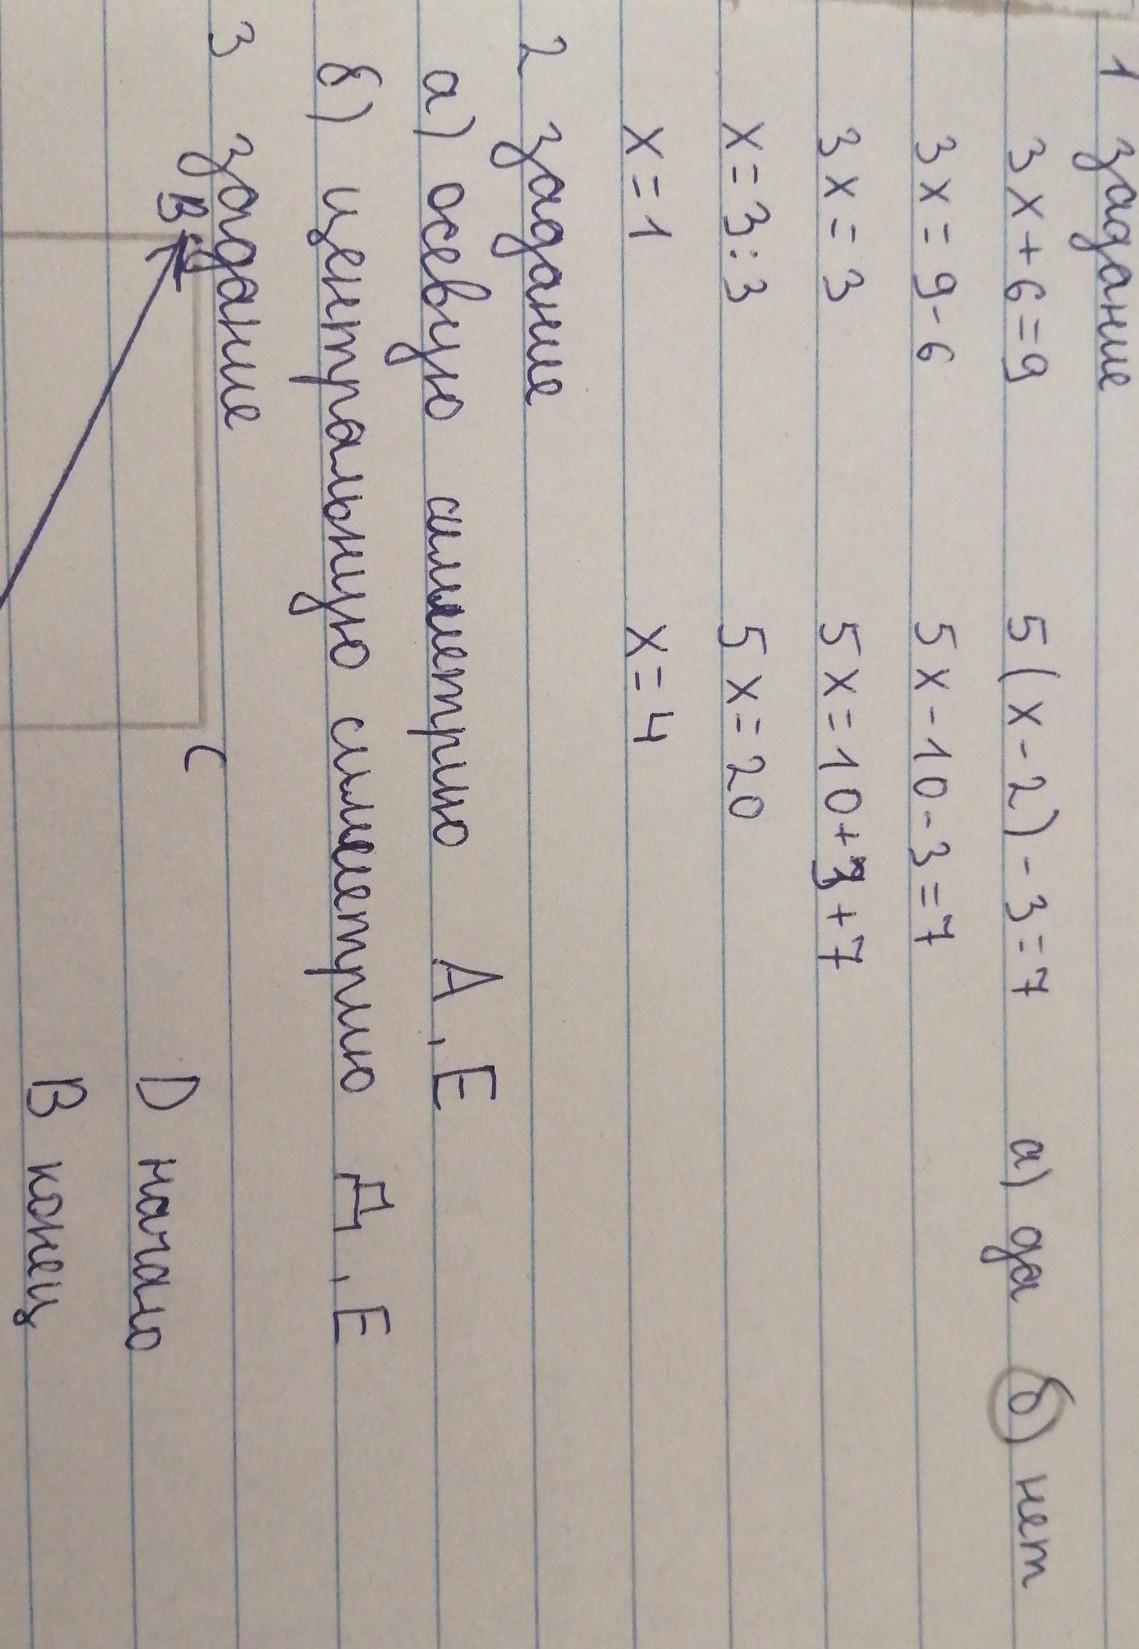 1 задание
3x+6=9 5(x-2)-3=7 а) да б) нет
3x=9-6 5x-10-3=7
3x=3 5x=10+3+7
x=3:3 5x=20
x=1 x=4
2 задание
а) осевую симметрию А, Е
б) центральную симметрию Д, Е
3 задание
B C D начало
B конец